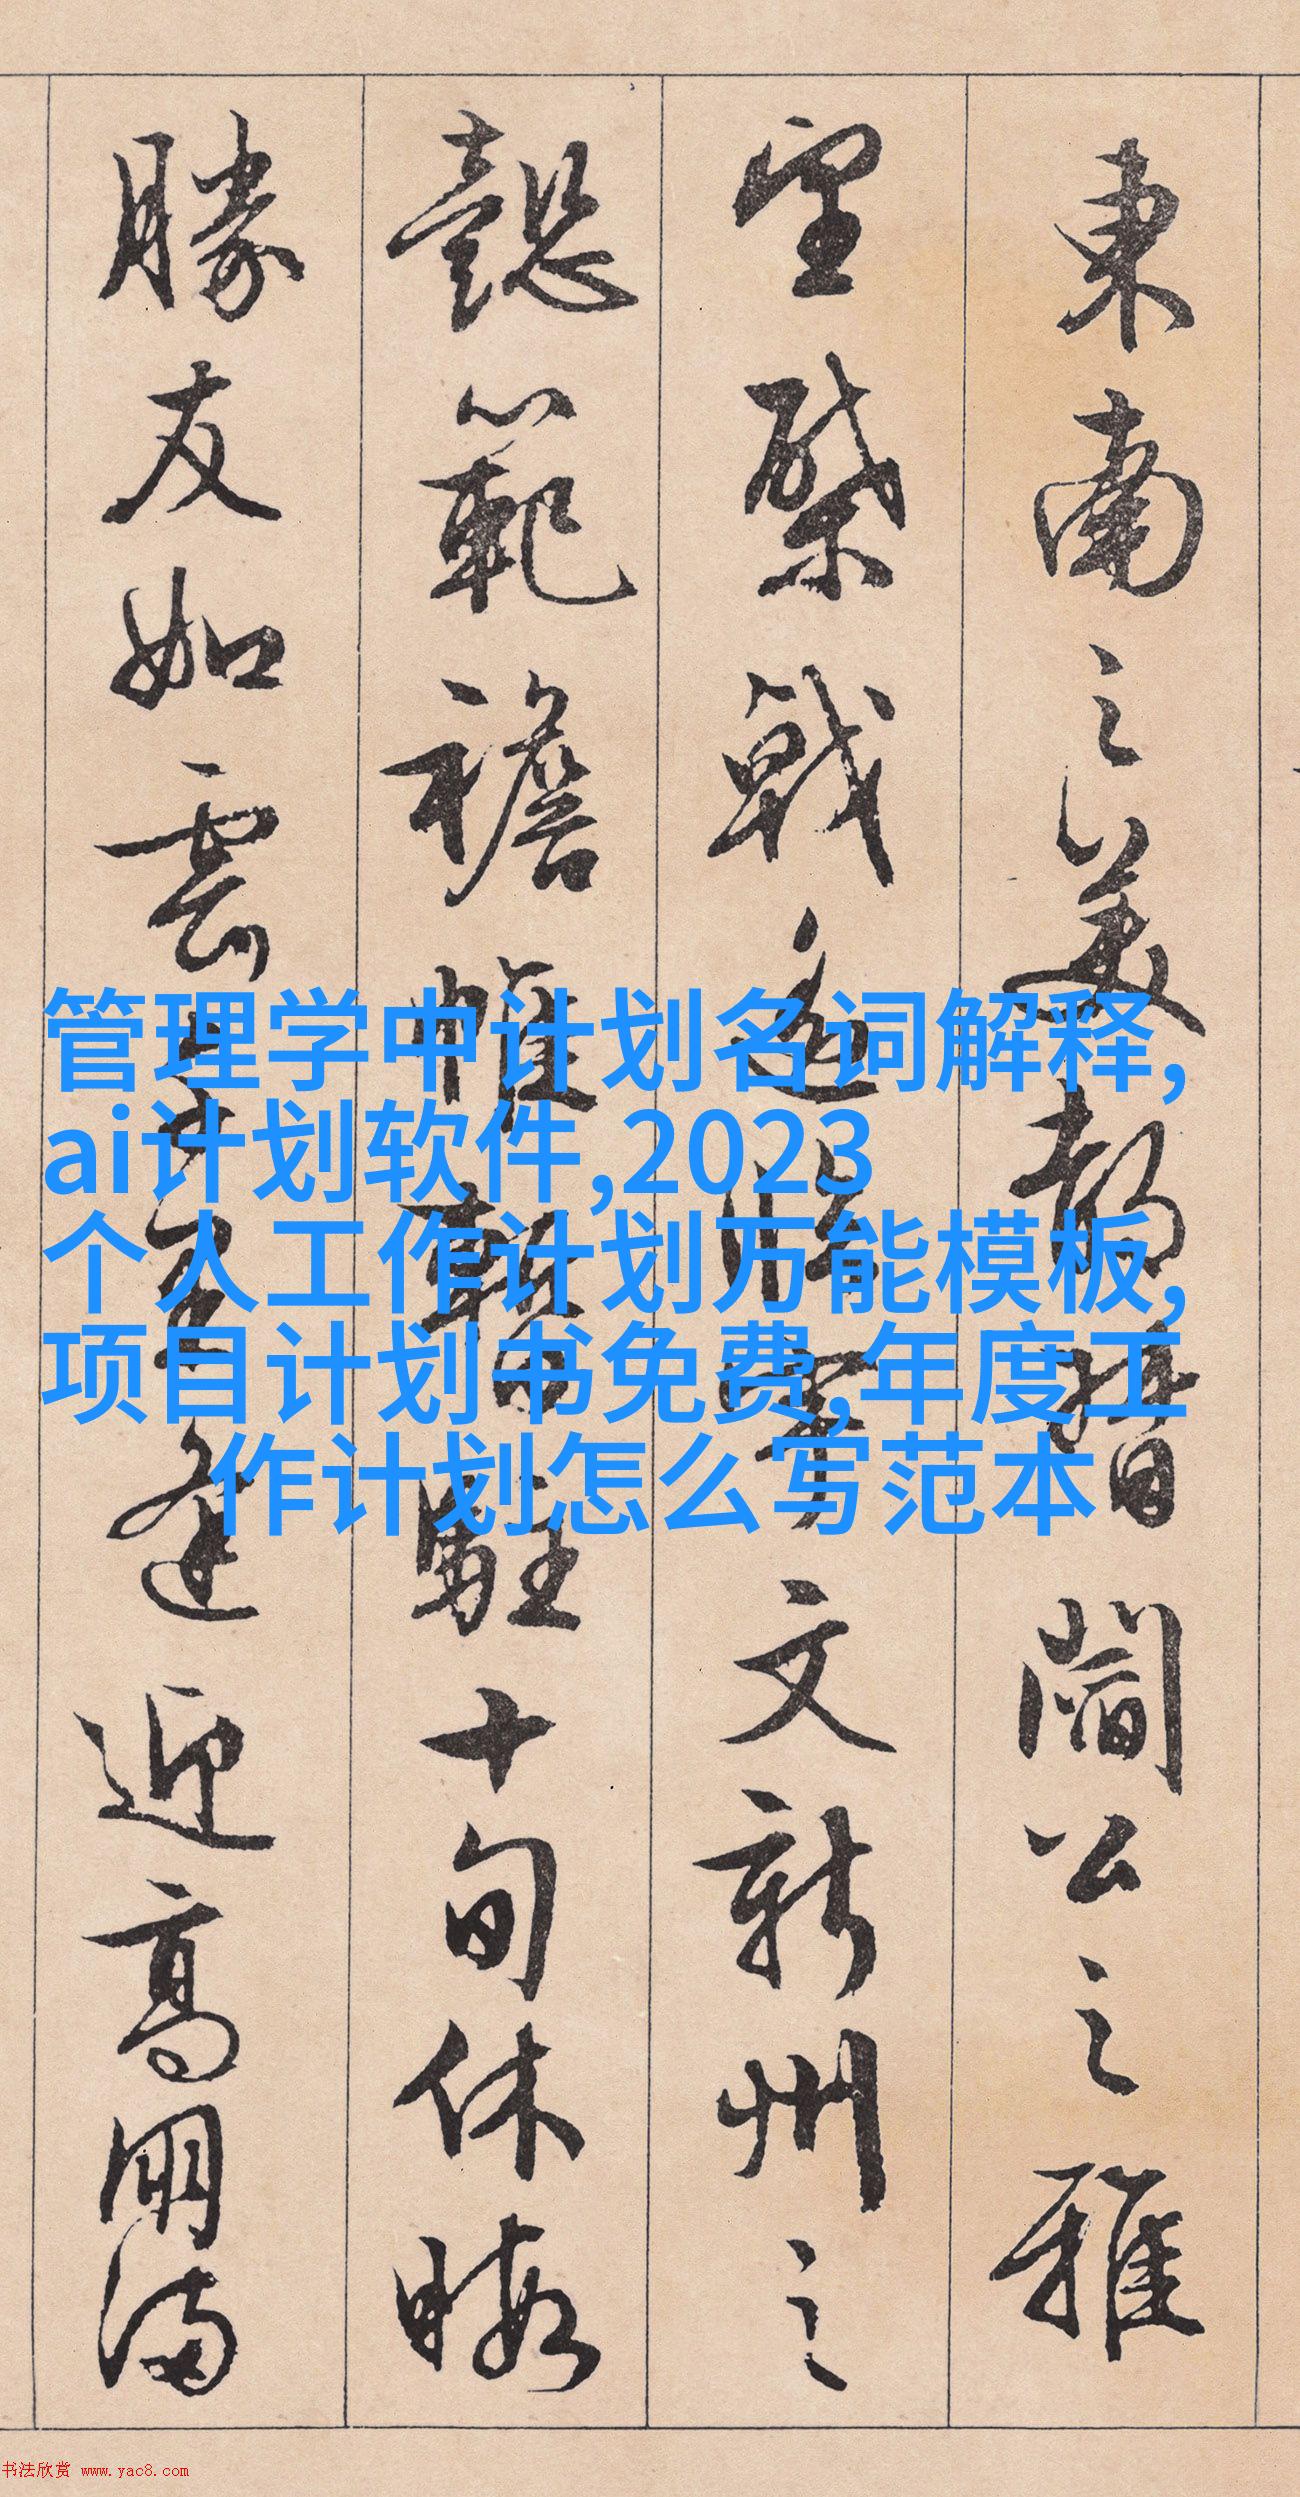 東南之美都督閻公之雅
望棨戟遙臨宇文新州之
懿範襜帷暫駐十旬休暇
勝友如雲千里逢迎高朋滿
管理学中计划名词解释,
ai计划软件,2023
个人工作计划万能模板,
项目计划书免费,年度工
作计划怎么写范本
书法欣赏 www.yac8.com